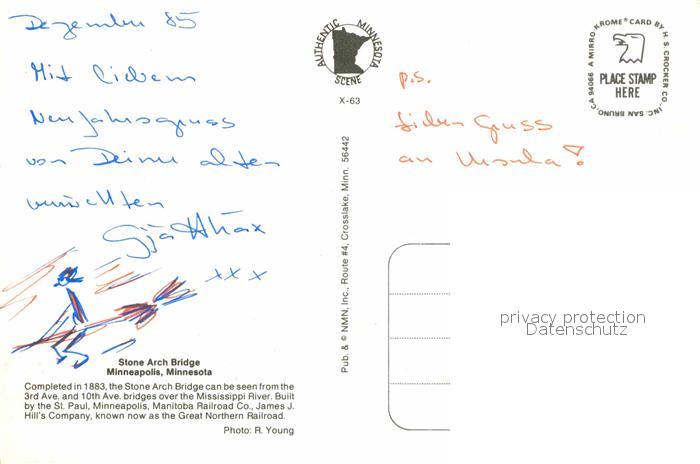 Dezember 85
Mit liebem
Neujahrsgruss
von Deinem alten
verrückten
x x x
Stone Arch Bridge
Minneapolis, Minnesota
Completed in 1883, the Stone Arch Bridge can be seen from the
3rd Ave. and 10th Ave. bridges over the Mississippi River. Built
by the St. Paul, Minneapolis, Manitoba Railroad Co., James J.
Hill's Company, known now as the Great Northern Railroad.
Photo: R. Young
AUTHENTIC MINNESOTA
SCENE
X-63
Pub. & © NMN, Inc., Route #4, Crosslake, Minn. 56442
P.S.
Lieben Gruss
an Ursula!
A MIRRO-KROME® CARD BY H. S. CROCKER CO., INC. SAN BRUNO, CA 94066
PLACE STAMP
HERE
privacy protection
Datenschutz